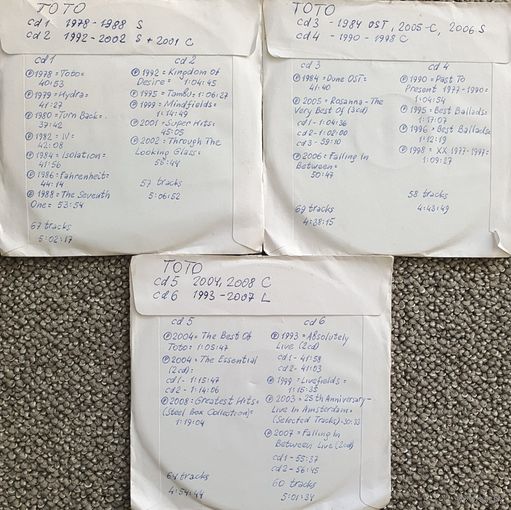 TOTO
cd 1 1978 - 1988 S
cd 2 1992 - 2002 S + 2001 C
cd 1
℗ 1978 = Toto =
40:53
℗ 1979 = Hydra =
41:27
℗ 1980 = Turn Back =
37:42
℗ 1982 = IV =
42:08
℗ 1984 = Isolation =
41:56
℗ 1986 = Fahrenheit =
44:14
℗ 1988 = The Seventh
One = 53:54
67 tracks
5:02:17
cd 2
℗ 1992 = Kingdom Of
Desire = 1:04:45
℗ 1995 = Tambu = 1:06:27
℗ 1999 = Mindfields =
1:14:49
℗ 2001 = Super Hits =
45:05
℗ 2002 = Through The
Looking Glass =
55:44
57 tracks
5:06:52
TOTO
cd 3 - 1984 OST, 2005 - C, 2006 S
cd 4 - 1990 - 1998 C
cd 3
℗ 1984 = Dune OST =
41:40
℗ 2005 = Rosanna - The
Very Best Of (3cd)
cd 1 - 1:04:36
cd 2 - 1:02:00
cd 3 - 59:10
℗ 2006 = Falling In
Between =
50:47
67 tracks
4:38:15
cd 4
℗ 1990 = Past To
Present 1977-1990 =
1:04:54
℗ 1995 = Best Ballads =
1:17:07
℗ 1996 = Best Ballads =
1:12:19
℗ 1998 = XX 1977-1997 =
1:09:27
58 tracks
4:43:49
TOTO
cd 5 2004, 2008 C
cd 6 1993 - 2007 L
cd 5
℗ 2004 = The Best Of
Toto = 1:05:47
℗ 2004 = The Essential
(2cd) =
cd 1 - 1:15:47
cd 2 - 1:14:06
℗ 2008 = Greatest Hits =
(Steel Box Collection) =
1:19:04
64 tracks
4:54:44
cd 6
℗ 1993 = Absolutely
Live (2cd)
cd 1 - 41:58
cd 2 - 41:03
℗ 1999 = Livefields =
1:15:35
℗ 2003 = 25th Anniversary -
Live In Amsterdam =
(Selected Tracks) = 30:33
℗ 2007 = Falling In
Between Live (2cd)
cd 1 - 55:37
cd 2 - 56:45
60 tracks
5:01:34